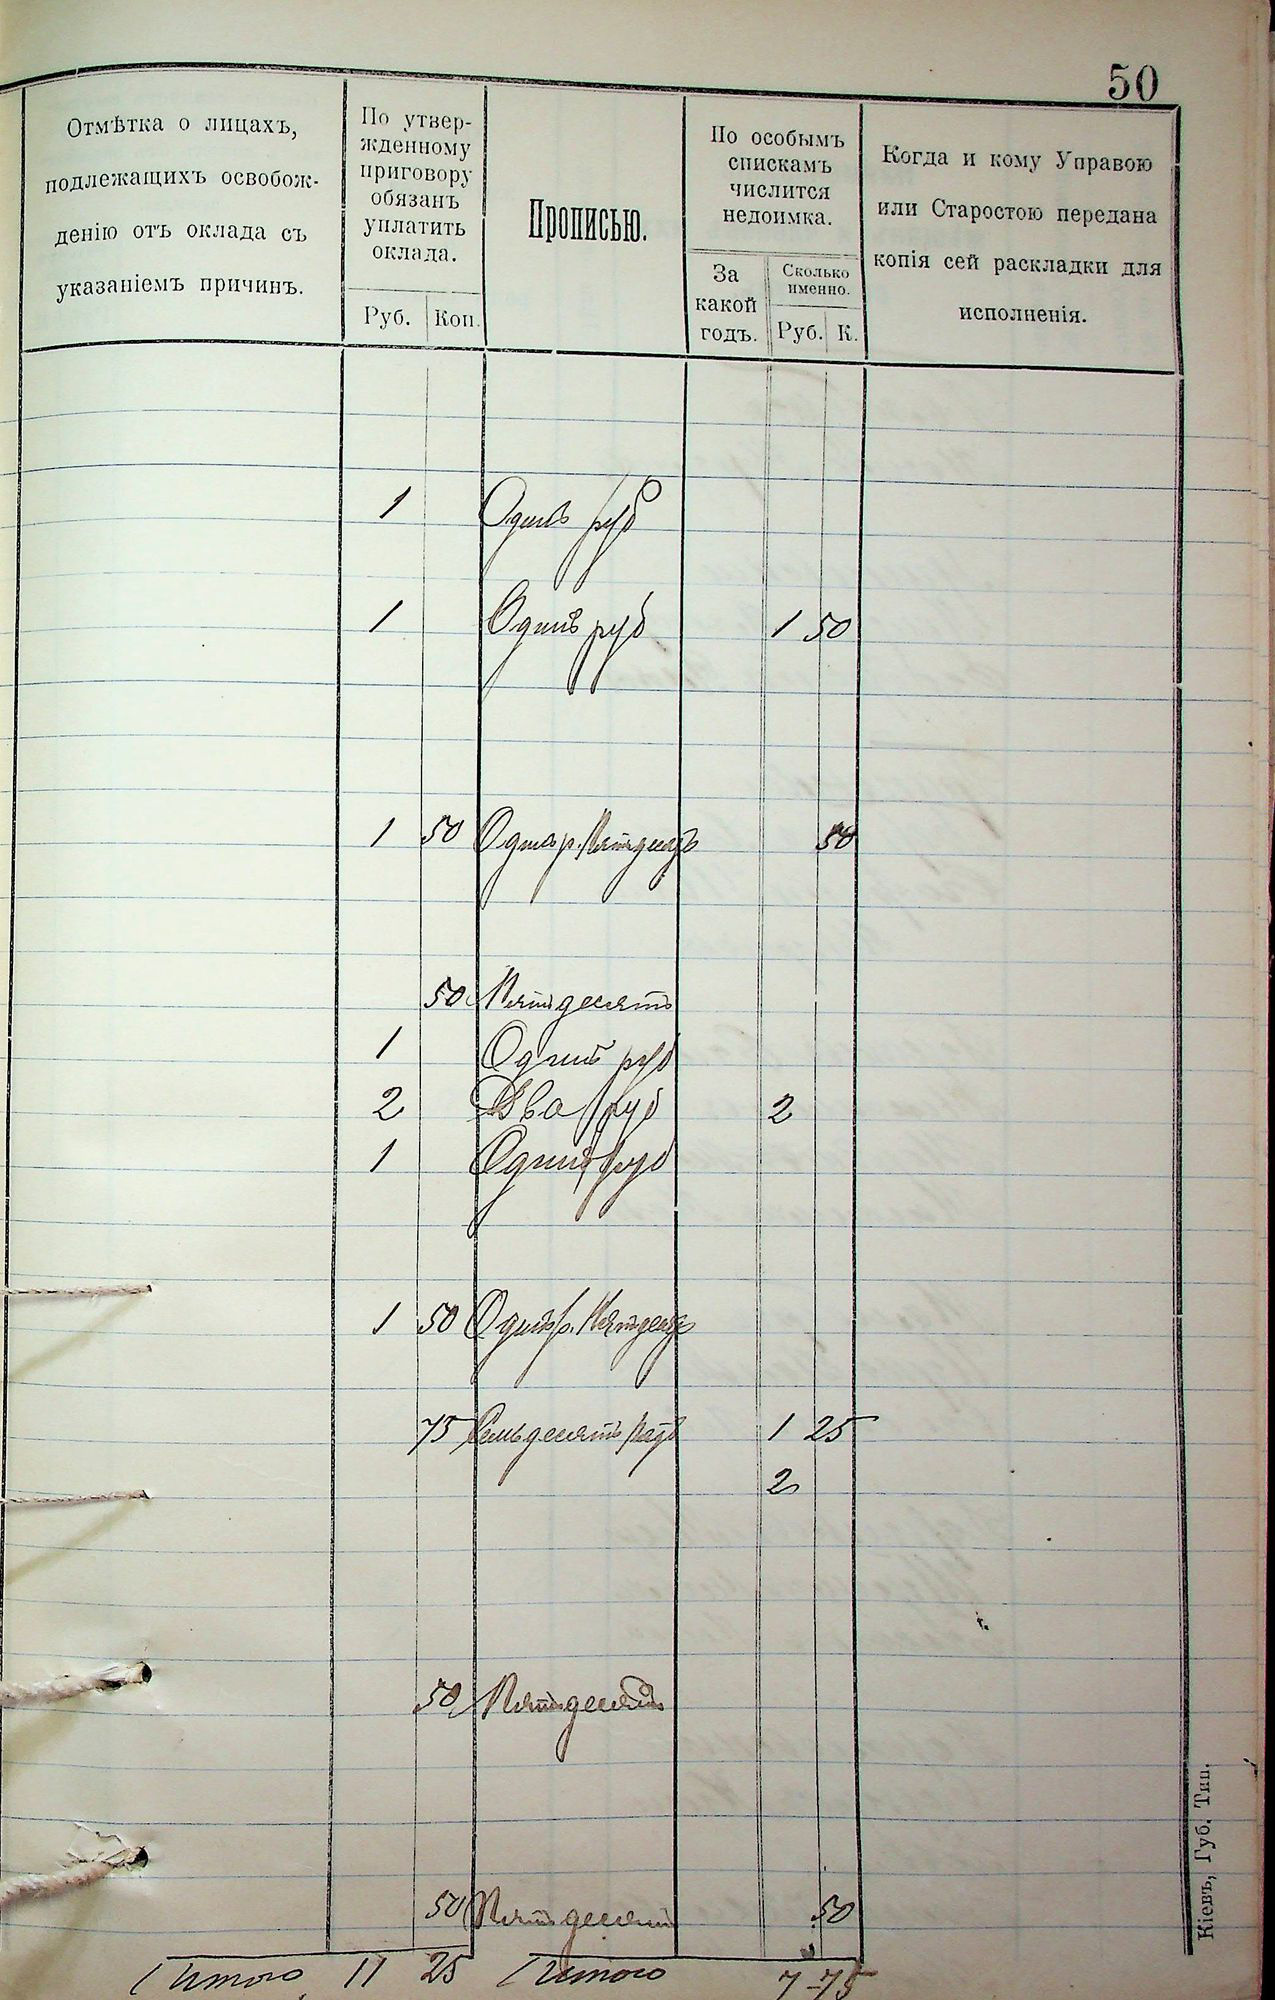 50
Отмѣтка о лицахъ,
подлежащихъ освобож-
денію отъ оклада съ
указаніемъ причинъ.
По утвер-
жденному
приговору
обязанъ
уплатить
оклада.
Руб. Коп.
Прописью.
По особымъ
спискамъ
числится
недоимка.
За
какой
годъ.
Сколько
именно.
Руб. К.
Когда и кому Управою
или Старостою передана
копія сей раскладки для
исполненія.
1 Одинъ руб
1 Одинъ руб 1 50
1 50 Одинъ р. Пятьдесятъ 50
50 Пятьдесятъ
1 Одинъ руб
2 Два руб 2
1 Одинъ руб
1 50 Одинъ р. Пятьдесятъ
75 Семьдесятъ пять 1 25
2
50 Пятьдесятъ
50 Пятьдесятъ 50
Итого 11 25 Итого 7-75
Кіевъ, Губ. Тип.